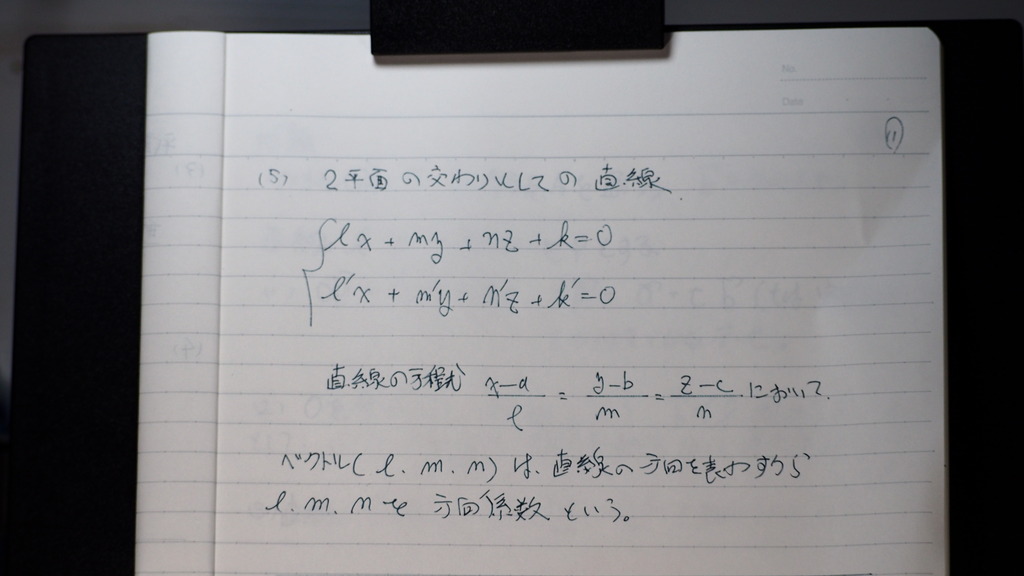 No.
Date
(1)
(5) 2平面の交わりとしての直線
lx + my + nz + k = 0
l'x + m'y + n'z + k' = 0
直線の方程式 x-a/l = y-b/m = z-c/n において、
ベクトル(l.m.n)は、直線の方向を表わすから
l.m.nを方向係数という。